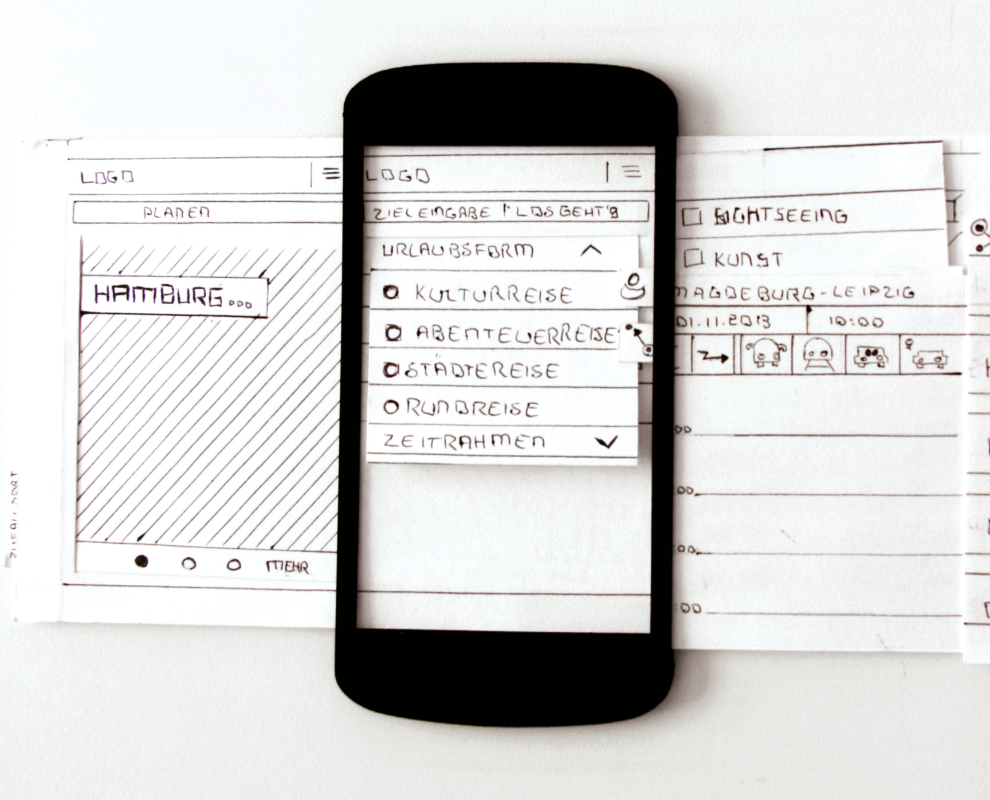 LOGO
PLANEN
HAMBURG...
MEHR
LOGO
ZIELEINGABE LOS GEHT'S
URLAUBSFORM
KULTURREISE
ABENTEUERREISE
STÄDTEREISE
RUNDREISE
ZEITRAHMEN
SIGHTSEEING
KUNST
MAGDEBURG-LEIPZIG
01.11.2013 10:00
00
:00
:00
:00